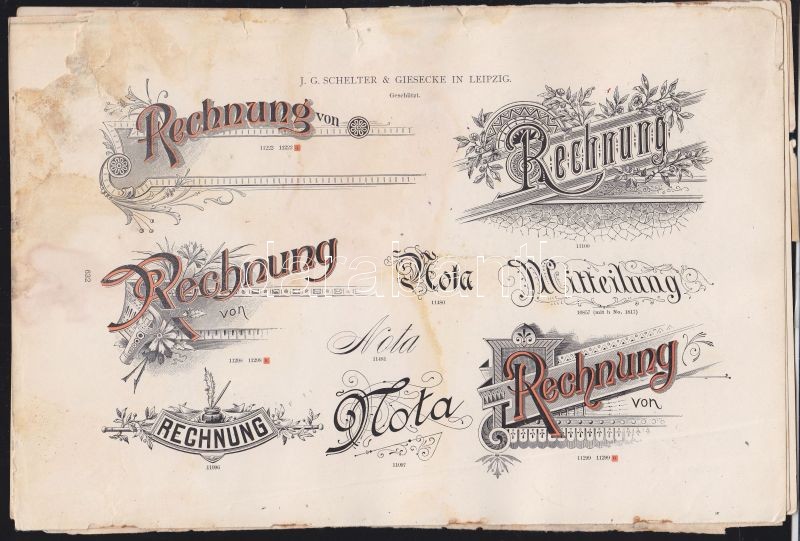 J. G. SCHELTER & GIESECKE IN LEIPZIG.
Geschützt.
Rechnung von
11223 11223 a
Rechnung
11100
632
Rechnung
von
11298 11298 a
Nota
11480
Mitteilung
10857 (mit h No. 1817)
Nota
11481
RECHNUNG
11096
Nota
11097
Rechnung
von
11299 11299 a